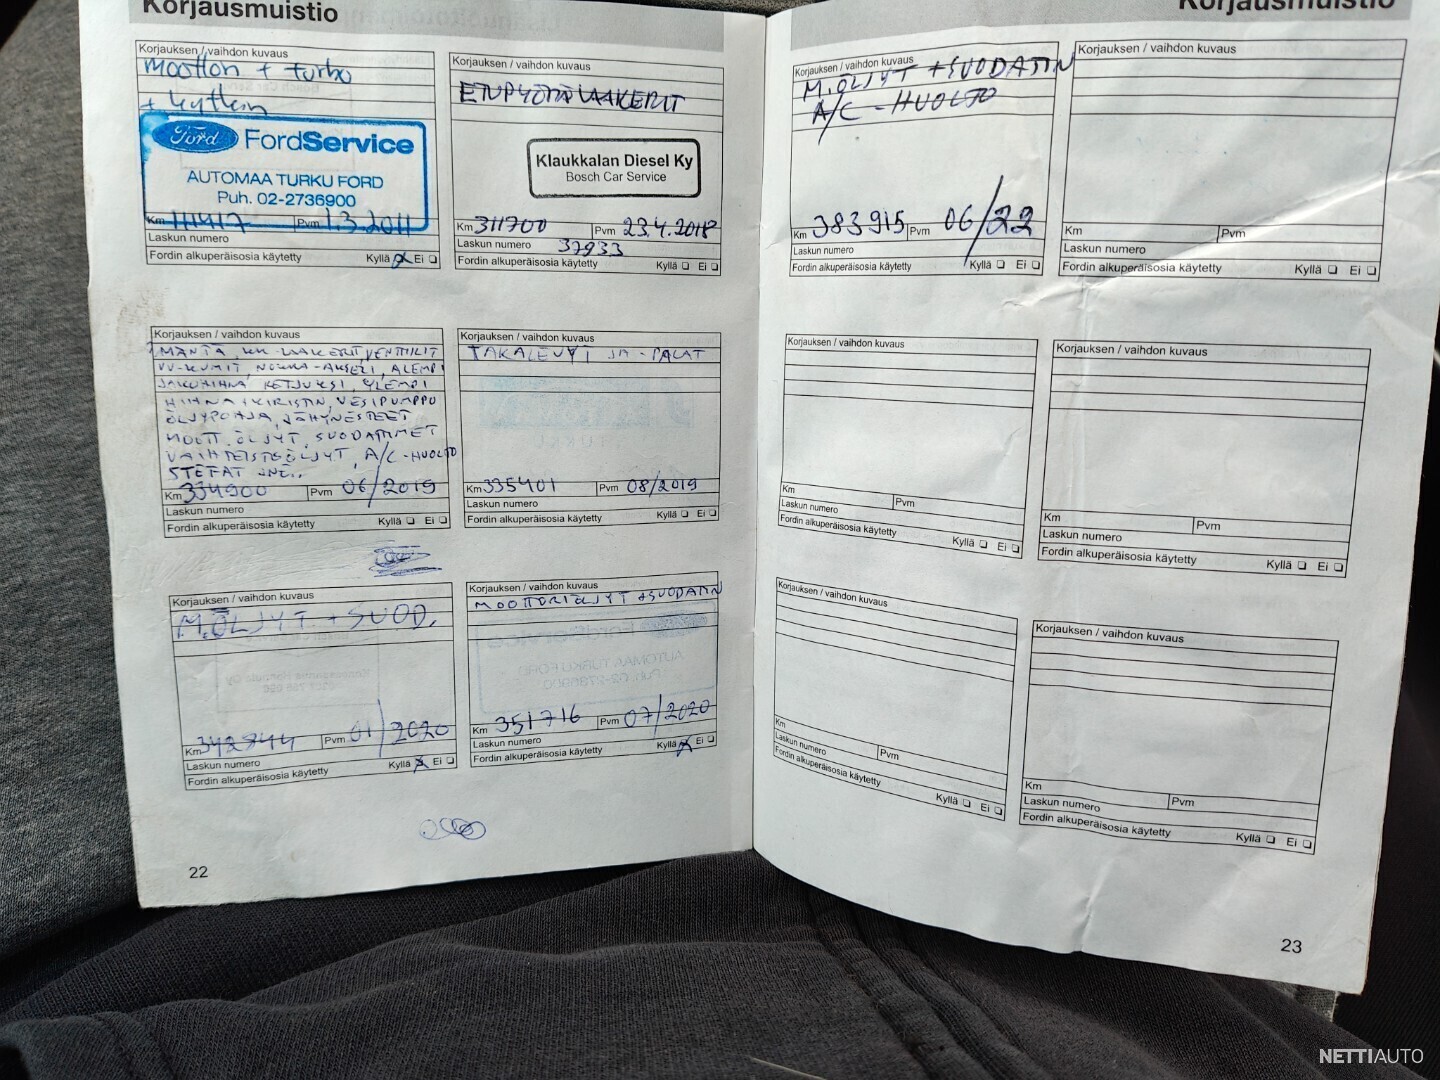 Korjausmuistio
Korjauksen / vaihdon kuvaus
moottori + turbo
+ kytkin
Ford FordService
AUTOMAA TURKU FORD
Puh. 02-2736900
Km 111417 Pvm 1.3.2011
Laskun numero
Fordin alkuperäisosia käytetty Kyllä Ei
Korjauksen / vaihdon kuvaus
ETUPYÖRÄLAAKERIT
Klaukkalan Diesel Ky
Bosch Car Service
Km 311700 Pvm 23.4.2018
Laskun numero 37933
Fordin alkuperäisosia käytetty Kyllä Ei
Korjauksen / vaihdon kuvaus
MÄNTÄ, KK-LAAKERIT, VENTTIILIT
VV-KUMIT, NOKKA-AKSELI, ALEMPI
JAKOHIHNA KETJUKSI, YLEMPI
HIHNA + KIRISTIN, VESIPUMPPU
ÖLJYPOHJA, JÄHYNESTEET
MOOTT.ÖLJYT, SUODATTIMET
VAIHTEISTOÖLJYT, A/C-HUOLTO
STEFAT JNE..
Km 334900 Pvm 06/2019
Laskun numero
Fordin alkuperäisosia käytetty Kyllä Ei
Korjauksen / vaihdon kuvaus
TAKALEVYT JA -PALAT
Km 335401 Pvm 08/2019
Laskun numero
Fordin alkuperäisosia käytetty Kyllä Ei
Korjauksen / vaihdon kuvaus
M.ÖLJYT + SUOD.
Km 342844 Pvm 01/2020
Laskun numero
Fordin alkuperäisosia käytetty Kyllä Ei
Korjauksen / vaihdon kuvaus
MOOTTORIÖLJYT + SUODATIN
Km 351716 Pvm 07/2020
Laskun numero
Fordin alkuperäisosia käytetty Kyllä Ei
22
Korjausmuistio
Korjauksen / vaihdon kuvaus
M.ÖLJYT + SUODATIN
A/C -HUOLTO
Km 383915 Pvm 06/22
Laskun numero
Fordin alkuperäisosia käytetty Kyllä Ei
Korjauksen / vaihdon kuvaus
Km Pvm
Laskun numero
Fordin alkuperäisosia käytetty Kyllä Ei
Korjauksen / vaihdon kuvaus
Km Pvm
Laskun numero
Fordin alkuperäisosia käytetty Kyllä Ei
Korjauksen / vaihdon kuvaus
Km Pvm
Laskun numero
Fordin alkuperäisosia käytetty Kyllä Ei
Korjauksen / vaihdon kuvaus
Km Pvm
Laskun numero
Fordin alkuperäisosia käytetty Kyllä Ei
Korjauksen / vaihdon kuvaus
Km Pvm
Laskun numero
Fordin alkuperäisosia käytetty Kyllä Ei
23
NETTIAUTO